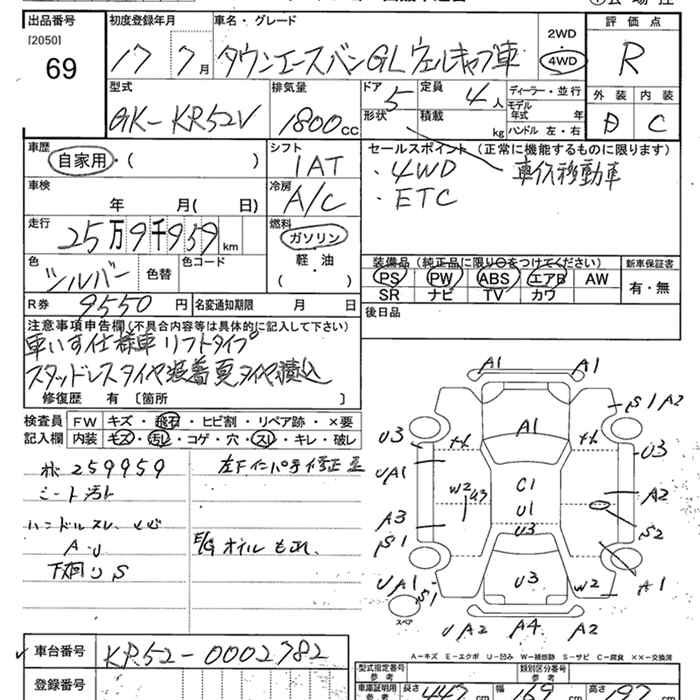 出品番号 初度登録年月 車名・グレード 2WD 評価点
[2050] ・
69 17 7月 タウンエースバンGLウェルキャブ車 4WD R
型式 排気量 ドア 5 定員 4人 ディーラー・並行 外装 内装
モデル年式 年
GK-KR52V 1800cc 形状 積載 kg ハンドル 左・右 D C
車歴 シフト セールスポイント(正常に機能するものに限ります)
自家用・( ) 1AT ・4WD 車イス移動車
車検 冷房 ・ETC
年 月( 日) A/C
走行 燃料
25万9千959km ガソリン
色 色替 色コード 軽・油 装備品(純正品に限り○をつけてください) 新車保証書
シルバー ( ) PS PW ABS エアB AW 有・無
R券 9550円 名変通知期限 月 日 SR ナビ TV カワ
注意事項申告欄(不具合内容等は具体的に記入して下さい) 後日品
車いす仕様車 リフトタイプ
スタッドレスタイヤ装着 夏タイヤ積込
修復歴 有〔箇所 〕
検査員 FW キズ・飛石・ヒビ割・リペア跡・×要
記入欄 内装 キズ・汚レ・コゲ・穴・スレ・キレ・破レ
259959
シート汚れ
ハンドルスレ
A・U E/Gオイルもれ
下廻りS
A1 A1
S1 A2
A1
U3 U3
UA1
W2 U3 C1 A2
U1
A3 U3 S2
S1
U3 W2 A1
UA1
S1
スペア
UA2 A4 A2
A-キズ E-エクボ U-凹み W-補修跡 S-サビ C-腐食 ××-交換済
車台番号 KR52-0002782 型式指定番号 参考 類別区分番号 参考
登録番号 車庫証明用 参考 長さ 447cm 幅 169cm 高さ 197cm